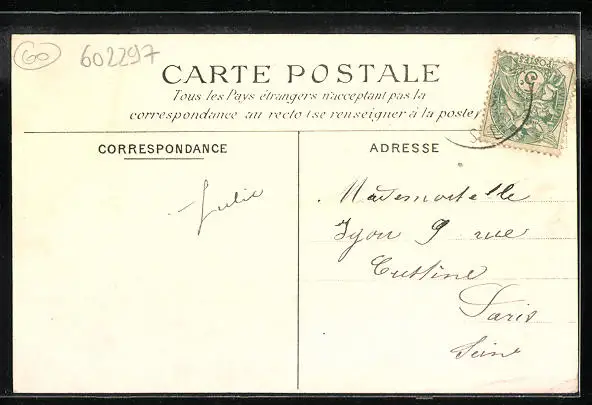 60
602297
CARTE POSTALE
Tous les Pays étrangers n'acceptant pas la
correspondance au recto (se renseigner à la poste)
CORRESPONDANCE
ADRESSE
Julie
Mademoiselle
Igou 9 rue
Custine
Paris
Seine